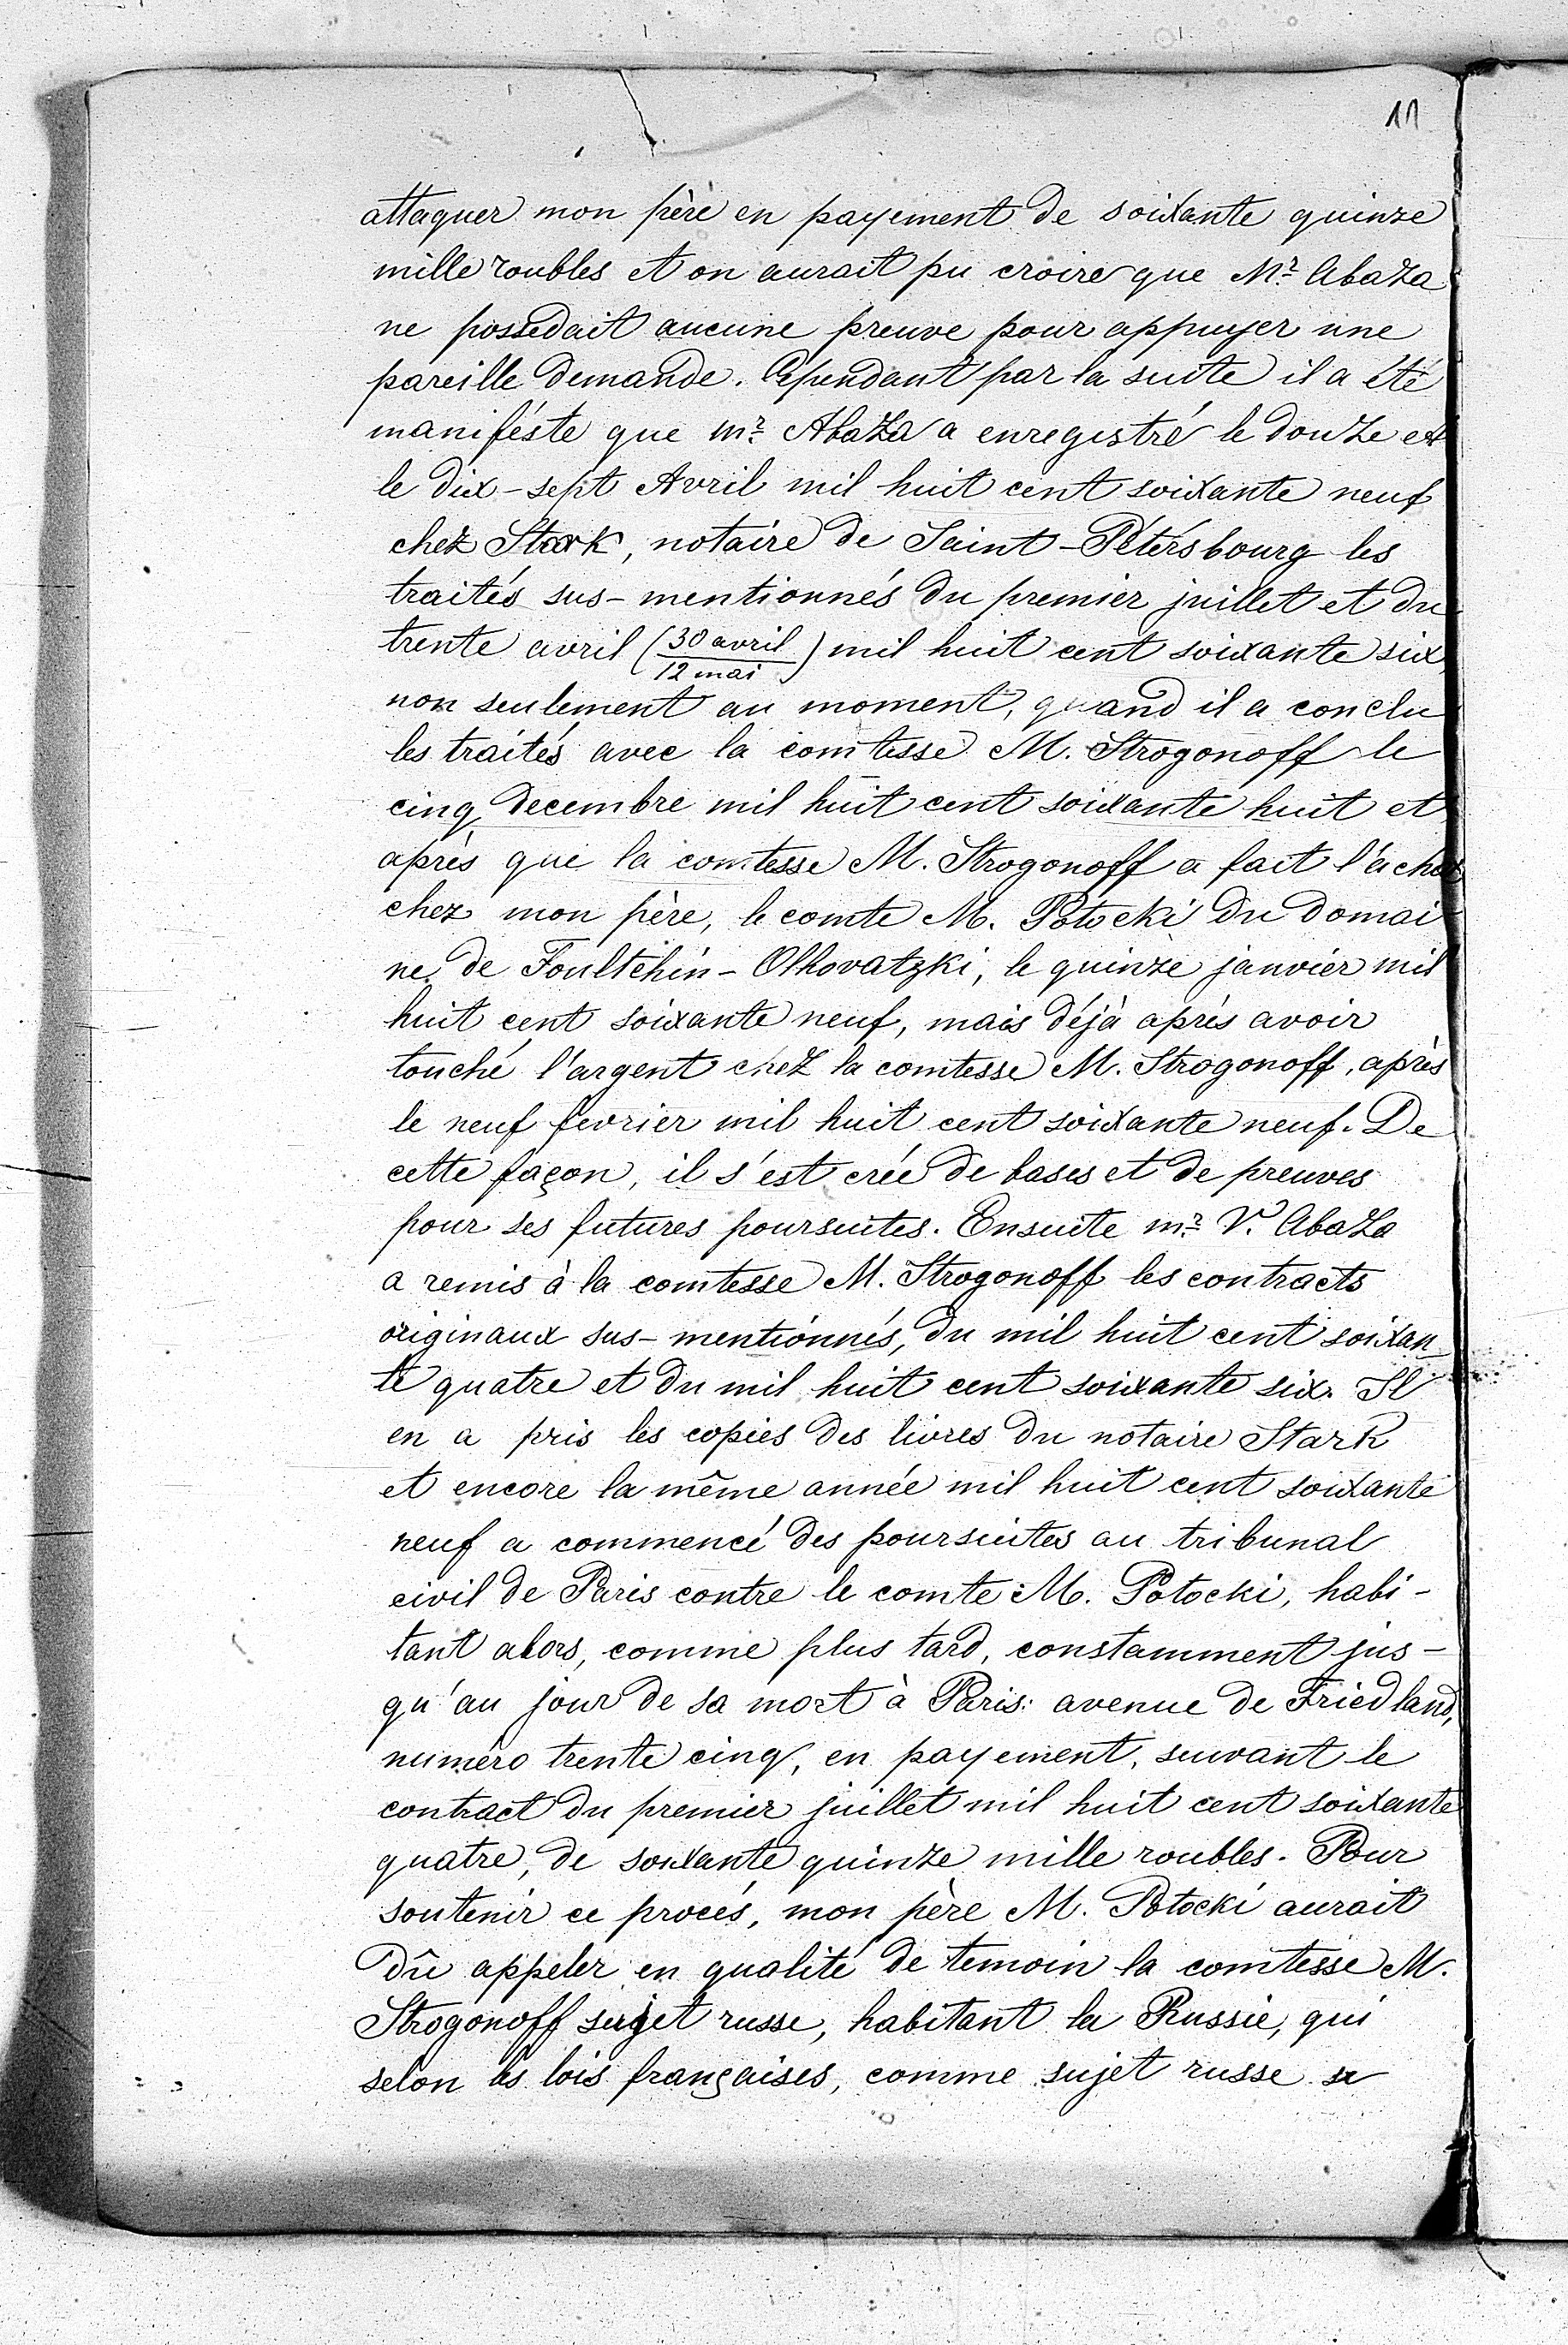 11
attaquer mon père en payement de soixante quinze
mille roubles et on aurait pu croire que Mr. Abaza
ne possedait aucune preuve pour appuyer une
pareille demande. Cependant par la suite il a été
manifèste que mr. Abaza a enregistré le douze et
le dix-sept Avril mil huit cent soixante neuf
chez Stark, notaire de Saint-Pétérsbourg les
traités sus-mentionnés du premier juillet et du
trente avril (30 avril/12 mai) mil huit cent soixante six,
non seulement au moment, quand il a conclu
les traités avec la comtesse M. Strogonoff le
cinq decembre mil huit cent soixante huit et
après que la comtesse M. Strogonoff a fait l'achat
chez mon père, le comte M. Potocki du domai-
ne de Foultchin-Olhovatzki, le quinze janvier mil
huit cent soixante neuf, mais déjà après avoir
touché l'argent chez la comtesse M. Strogonoff, après
le neuf fevrier mil huit cent soixante neuf. De
cette façon, il s'est crée de bases et de preuves
pour ses futures poursuites. Ensuite mr. V. Abaza
a remis à la comtesse M. Strogonoff les contracts
originaux sus-mentionnés, du mil huit cent soixan-
te quatre et du mil huit cent soixante six. Il
en a pris les copies des livres du notaire Stark
et encore la même année mil huit cent soixante
neuf a commencé des poursuites au tribunal
civil de Paris contre le comte M. Potocki, habi-
tant alors, comme plus tard, constamment jus-
qu'au jour de sa mort à Paris: avenue de Friedland,
numéro trente cinq, en payement, suivant le
contract du premier juillet mil huit cent soixante
quatre, de soixante quinze mille roubles. Pour
soutenir ce procés, mon père M. Potocki aurait
dû appeler en qualité de temoin la comtesse M.
Strogonoff sujet russe, habitant la Russie, qui
selon les lois françaises, comme sujet russe se